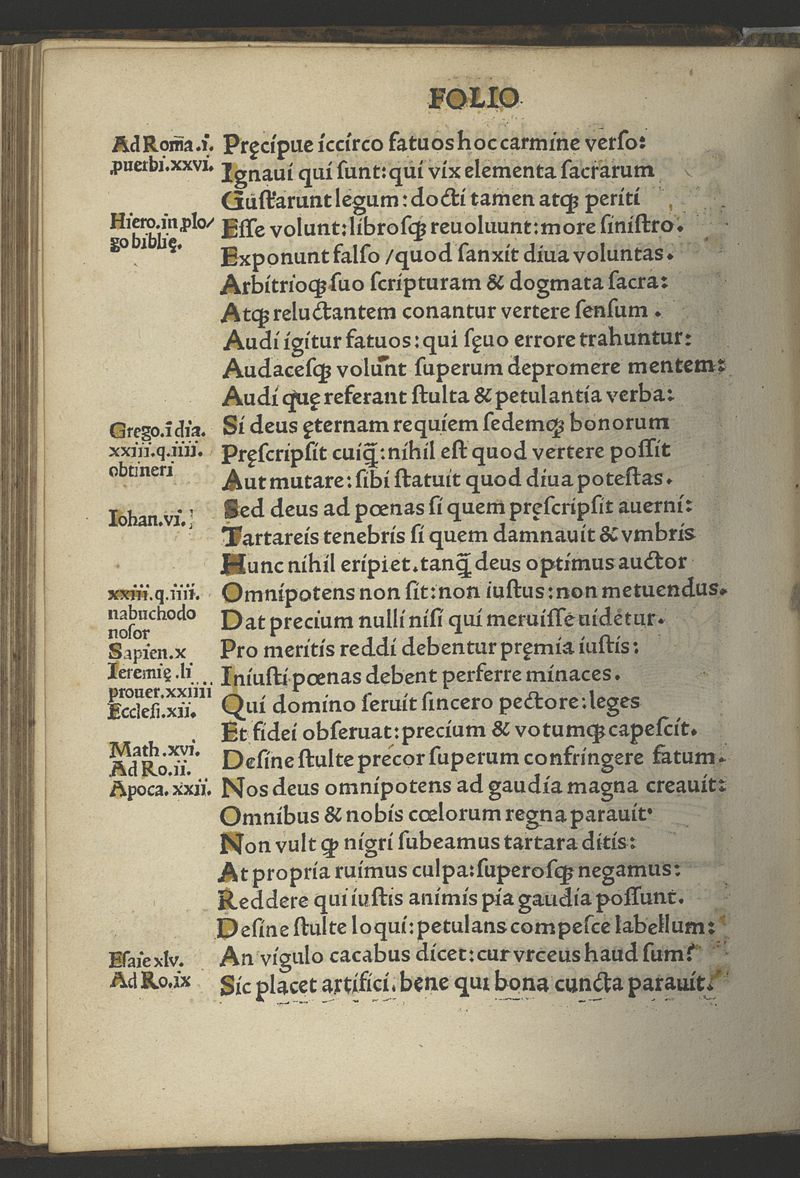 FOLIO
Ad Roma͞.i.
ꝓuerbi.xxvi.
Hiero.in ꝓlo/
go biblię.
Grego.ī dia.
xxiii.q.iiii.
obtineri
Iohan.vi.
xxiii.q.iiii.
nabuchodo
noſor
Sapien.x
Ieremię.li
prouer.xxiiii
Eccleſi.xii.
Math.xvi.
Ad Ro.ii.
Apoca.xxii.
Eſaie xlv.
Ad Ro.ix
Pręcipue iccirco fatuos hoc carmine verſo:
Ignaui qui ſunt: qui vix elementa ſacrarum
Guſtarunt legum: docti tamen atqꝫ periti
Eſſe volunt: libroſqꝫ reuoluunt: more ſiniſtro.
Exponunt falſo / quod ſanxit diua voluntas.
Arbitrioqꝫ ſuo ſcripturam & dogmata ſacra:
Atqꝫ reluctantem conantur vertere ſenſum .
Audi igitur fatuos: qui ſęuo errore trahuntur:
Audaceſqꝫ volunt ſuperum depromere mentem:
Audi quę referant ſtulta & petulantia verba:
Si deus ęternam requiem ſedemqꝫ bonorum
Pręſcripſit cuiq̃: nihil eſt quod vertere poſſit
Aut mutare: ſibi ſtatuit quod diua poteſtas.
Sed deus ad pœnas ſi quem pręſcripſit auerni:
Tartareis tenebris ſi quem damnauit & vmbris
Hunc nihil eripiet. tanq̃ deus optimus auctor
Omnipotens non ſit: non iuſtus: non metuendus.
Dat precium nulli niſi qui meruiſſe uidēt​ur.
Pro meritis reddi debentur pręmia iuſtis:
Iniuſti pœnas debent perferre minaces.
Qui domino ſeruit ſincero pectore: leges
Et fidei obſeruat: precium & votumqꝫ capeſcit.
Deſine ſtulte precor ſuperum confringere fatum.
Nos deus omnipotens ad gaudia magna creauit:
Omnibus & nobis cœlorum regna parauit.
Non vult ꝙ nigri ſubeamus tartara ditis:
At propria ruimus culpa: ſuperoſqꝫ negamus:
Reddere qui iuſtis animis pia gaudia poſſunt.
Deſine ſtulte loqui: petulans compeſce labellum:
An vigulo cacabus dicet: cur vrceus haud ſum?
Sic placet artifici. bene qui bona cuncta parauit.